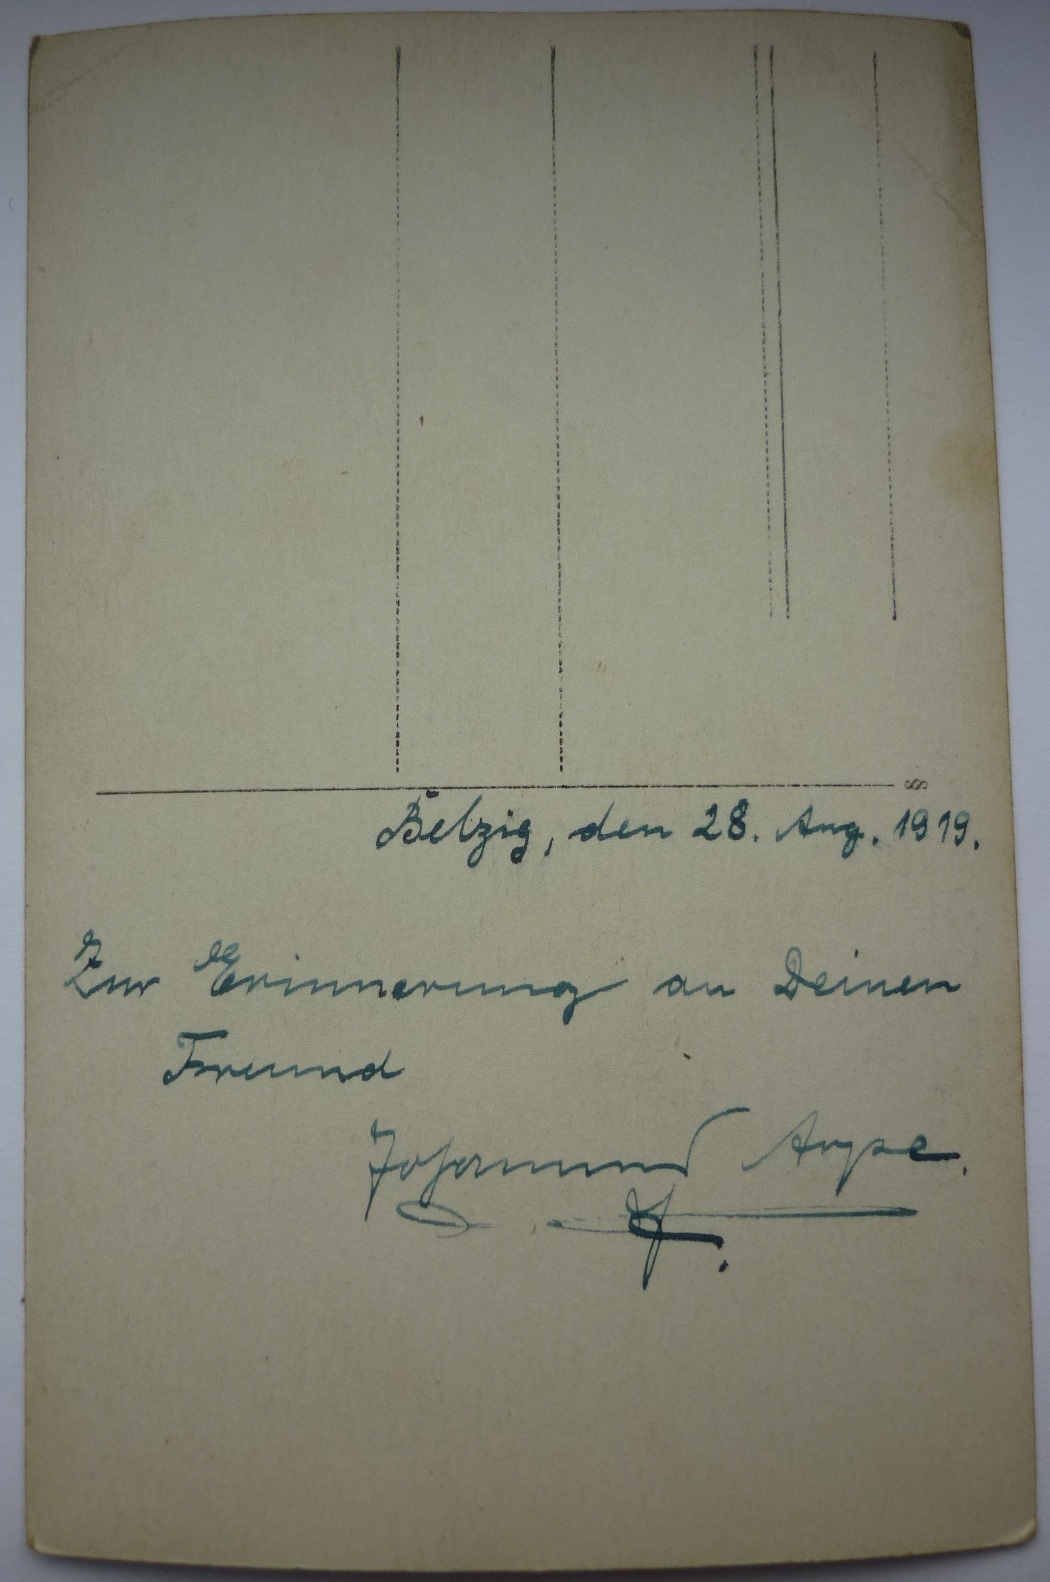 Belzig, den 28. Aug. 1919.
Zur Erinnerung an Deinen
Freund